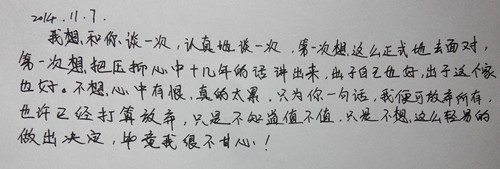 2014.11.7.
我想和你谈一次，认真地谈一次，第一次想这么正式地去面对，
第一次想把压抑心中十几年的话讲出来，出于自己也好，出于这个家
也好。不想心中有恨，真的太累，只为你一句话，我便可放弃所有，
也许已经打算放弃，只是不知道值不值，只是不想这么轻易的
做出决定，毕竟我很不甘心！